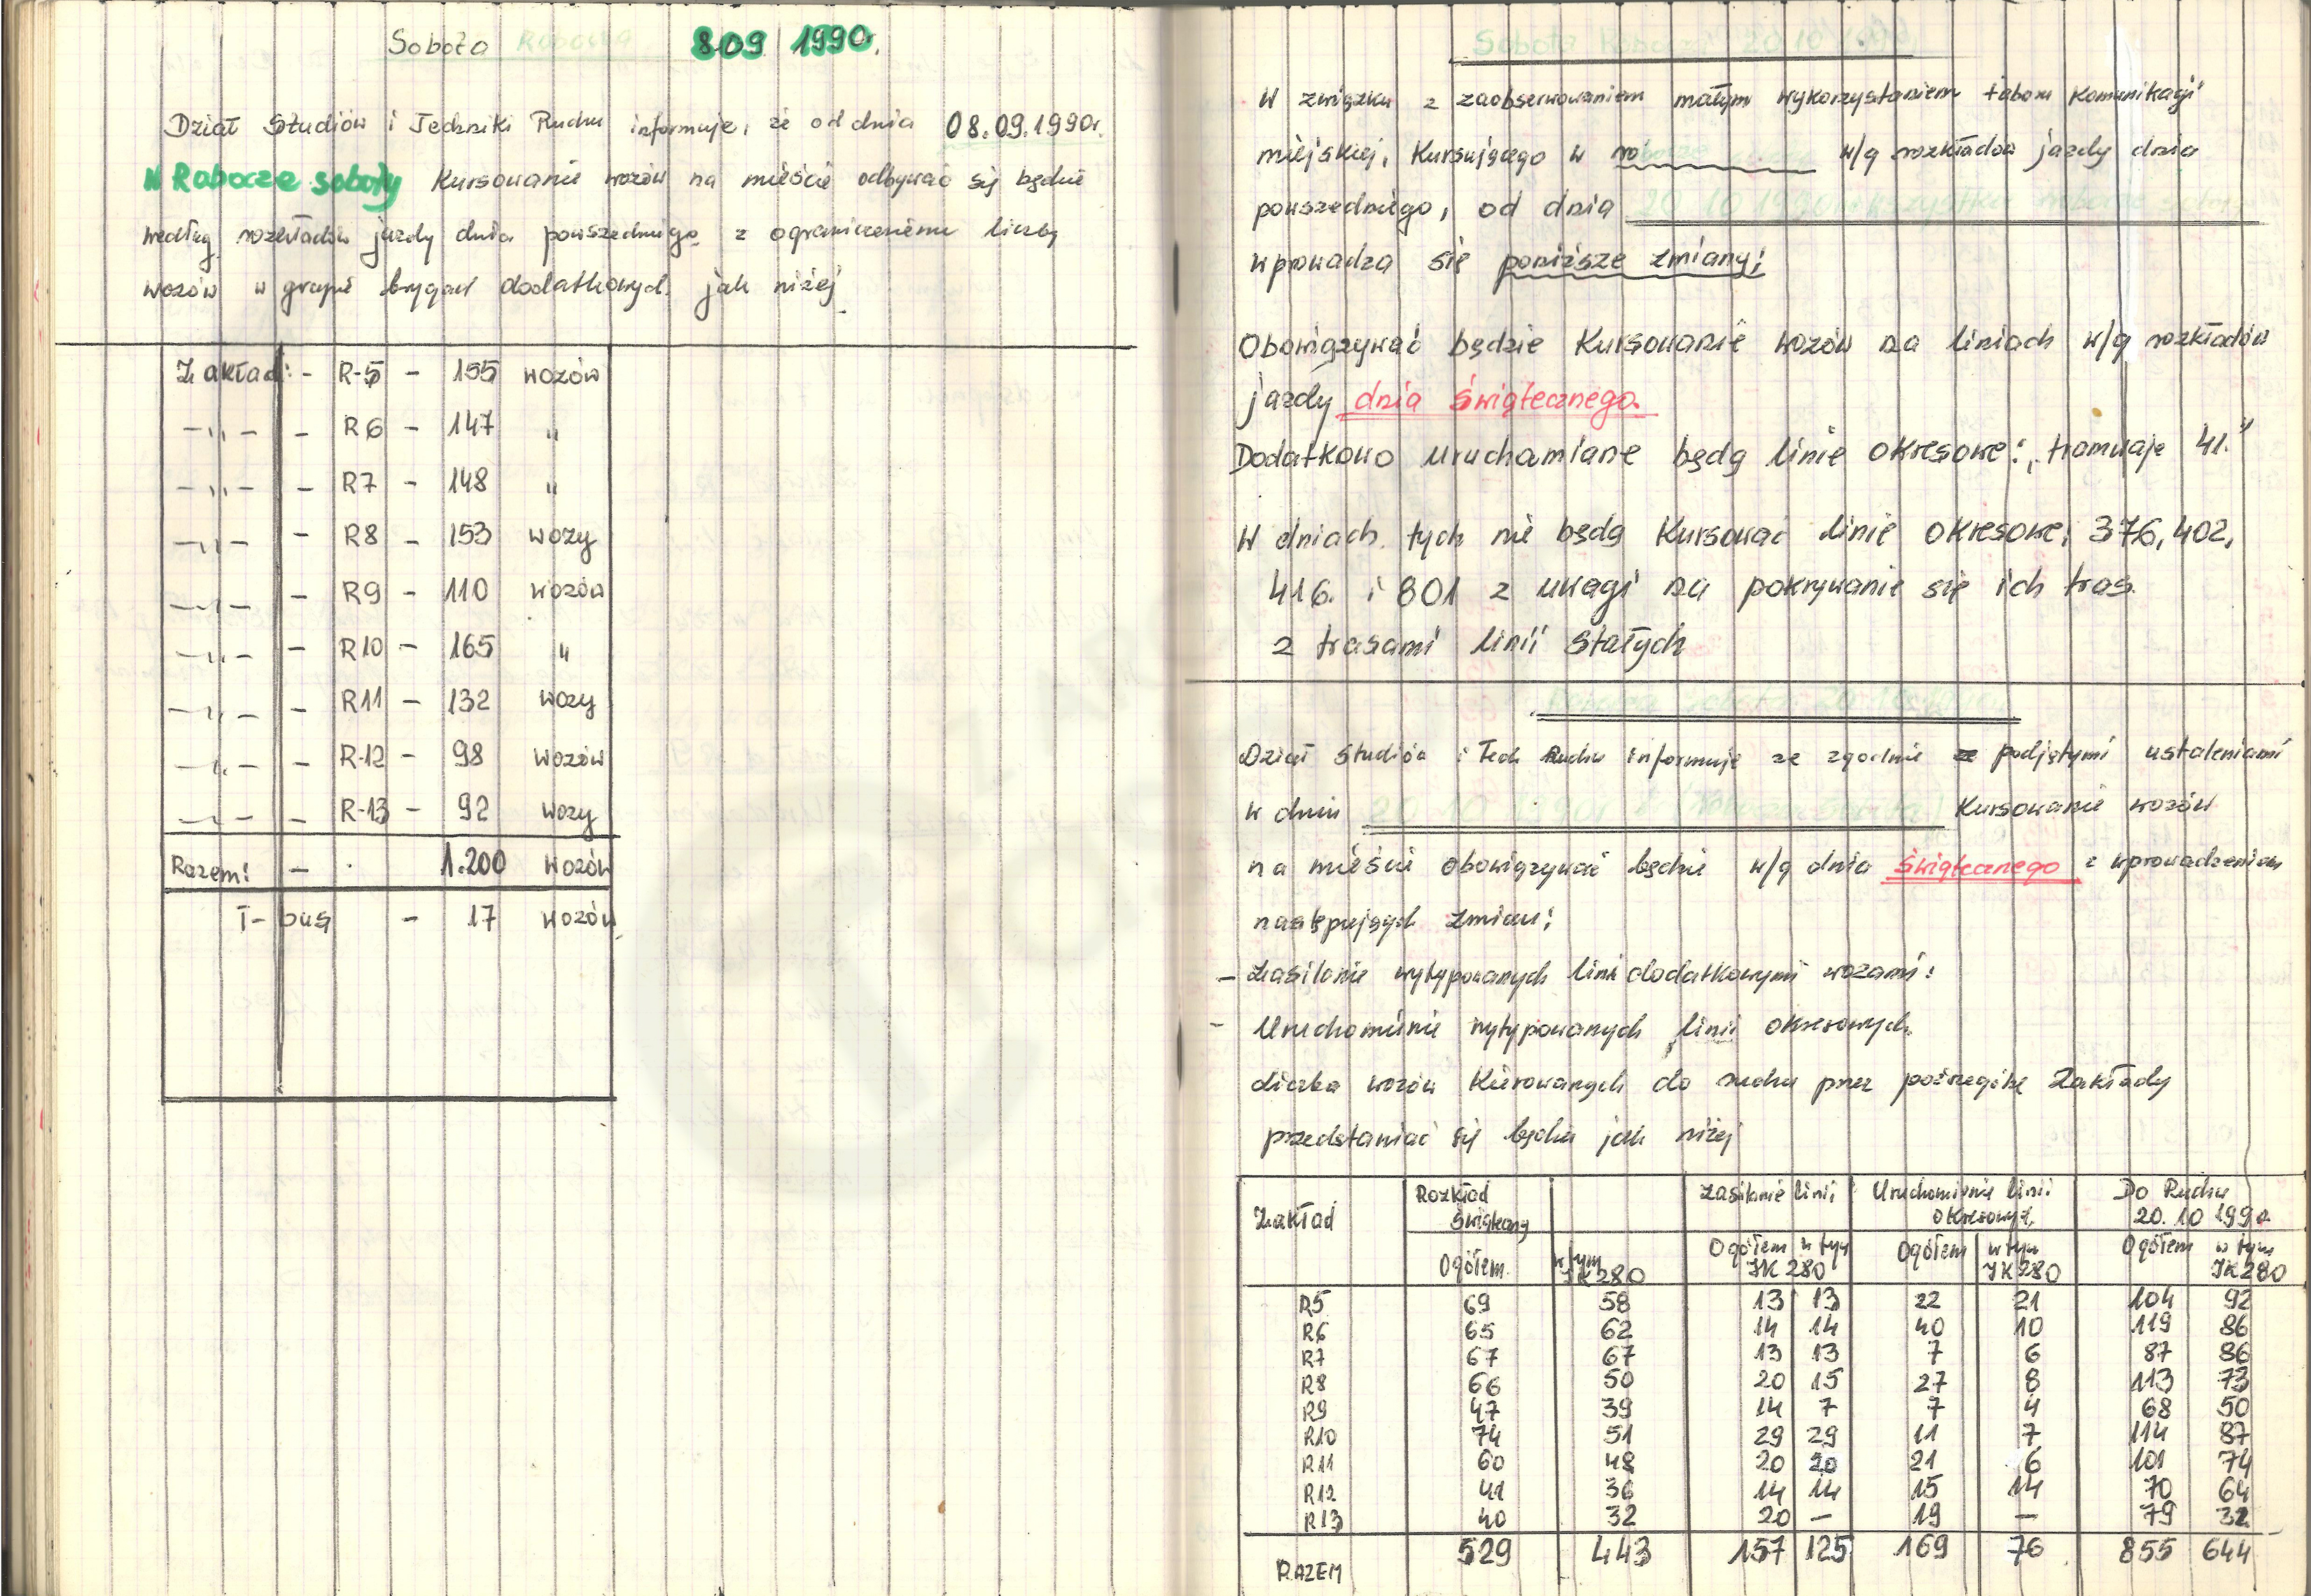 Sobota Robocza 8.09 1990r.
Dział Studiów i Techniki Ruchu informuje, że od dnia 08.09.1990r.
W Robocze soboty Kursowanie wozów na mieście odbywać się będzie
według rozkładów jazdy dnia powszedniego z ograniczeniem liczby
wozów w grupie brygad dodatkowych jak niżej
Zakład: - R-5 - 155 wozów
-"- - R6 - 147 "
-"- - R7 - 148 "
-"- - R8 - 153 wozy
-"- - R9 - 110 wozów
-"- - R10 - 165 "
-"- - R11 - 132 wozy
-"- - R-12 - 98 wozów
-"- - R-13 - 92 wozy
Razem: - 1.200 wozów
T-bus - 17 wozów
Sobota Robocza 20.10.1990
W związku z zaobserwowaniem małym wykorzystaniem taboru Komunikacji
miejskiej, Kursującego w robocze soboty w/g rozkładów jazdy dnia
powszedniego, od dnia 20 10 1990 wszystkie robocze soboty
wprowadza się poniższe zmiany:
Obowiązywać będzie Kursowanie wozów na liniach w/g rozkładów
jazdy dnia świątecznego.
Dodatkowo uruchamiane będą linie okresowe: "tramwaje 41."
W dniach tych nie będą Kursować linie okresowe, 376, 402,
416. i 801 z uwagi na pokrywanie się ich tras.
z trasami linii stałych
Robocza Sobota 20.10.1990
Dział Studiów i Tech Ruchu informuje ze zgodnie ze podjętymi ustaleniami
w dniu 20 10 1990r (Robocza Sobota) Kursowanie wozów
na mieście obowiązywać będzie w/g dnia świątecznego z wprowadzeniem
następujących zmian:
- Zasilanie wytypowanych linii dodatkowymi wozami:
- Uruchomienie wytypowanych linii okresowych.
Liczba wozów Kierowanych do ruchu przez poszczególne Zakłady
przedstawiać się będzie jak niżej
Zakład Rozkład świąteczny Zasilanie linii Uruchomienie linii okresowych Do Ruchu 20.10 1990
Ogółem w tym IK280 Ogółem w tym IK 280 Ogółem w tym IK280 Ogółem w tym IK280
R5 69 58 13 13 22 21 104 92
R6 65 62 14 14 40 10 119 86
R7 67 67 13 13 7 6 87 86
R8 66 50 20 15 27 8 113 73
R9 47 39 14 7 7 4 68 50
R10 74 51 29 29 11 7 114 87
R11 60 48 20 20 21 6 101 74
R12 41 36 14 14 15 14 70 64
R13 40 32 20 - 19 - 79 32
RAZEM 529 443 157 125 169 76 855 644